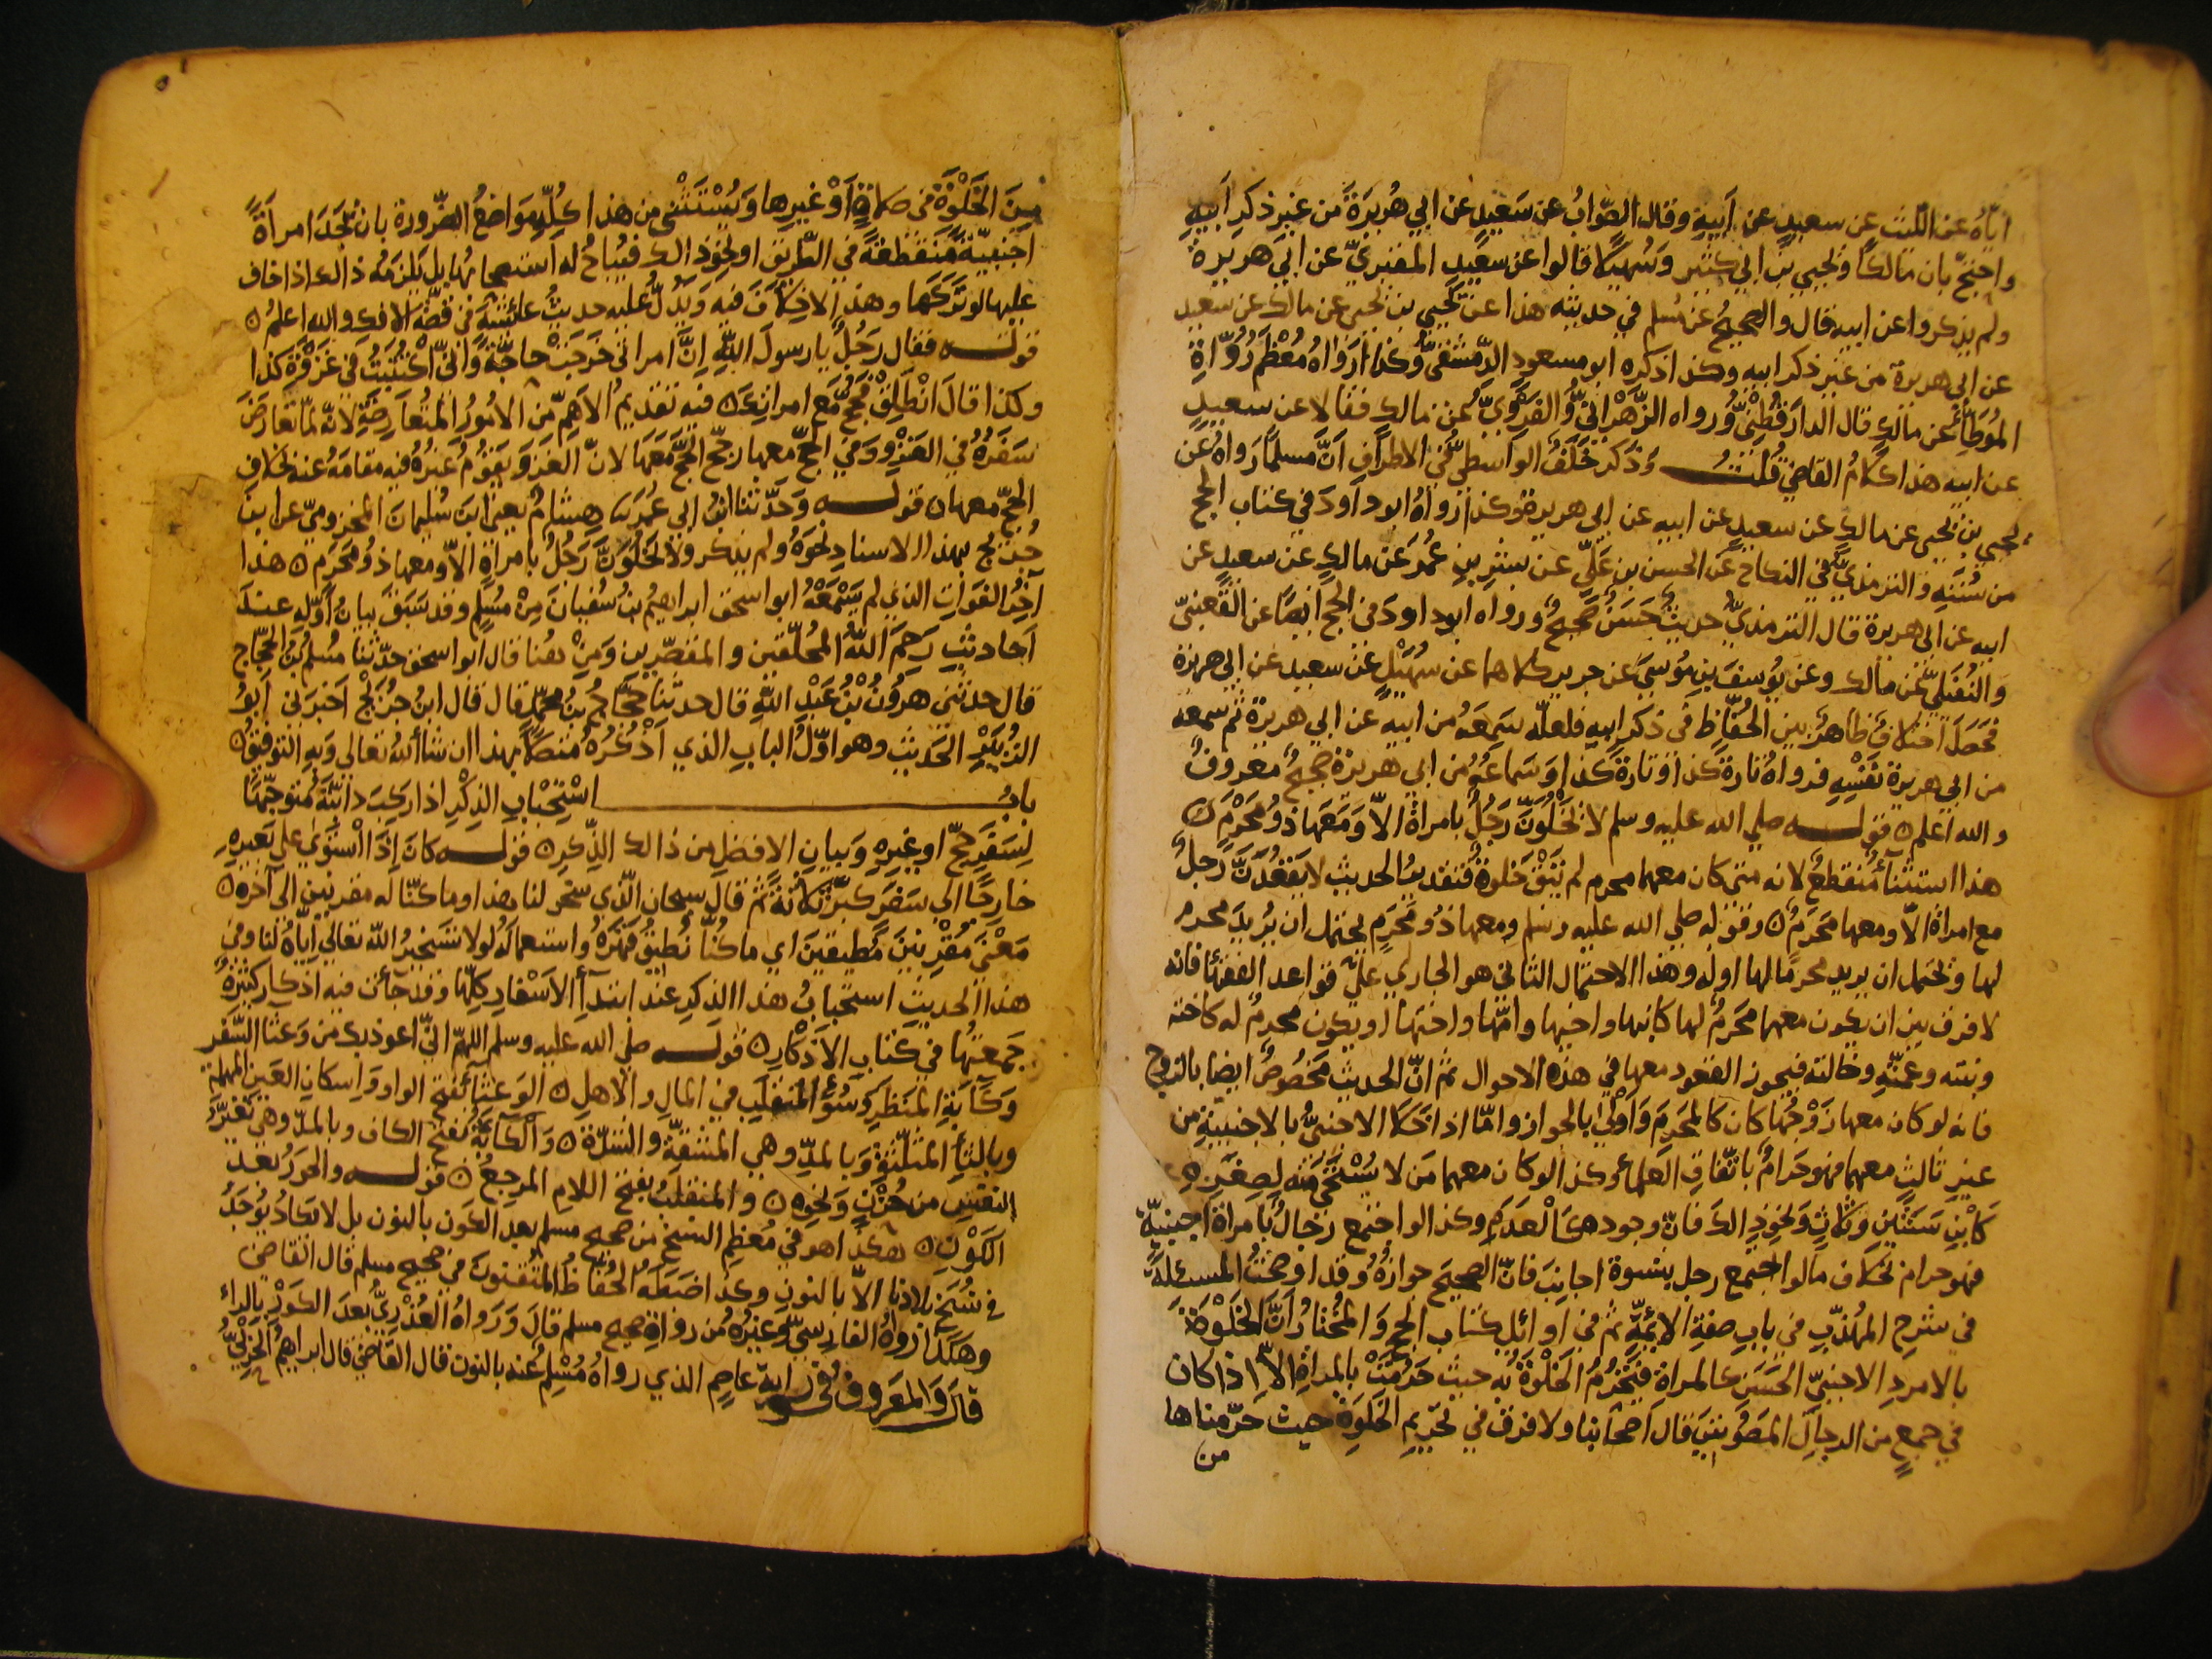 اياه عن الليث عن سعيد عن ابيه وقال الصواب عن سعيد عن ابي هريرة من غير ذكر ابيه
واحتج بان مالكا ويحيي بن ابي كثير وسهيلا قالوا عن سعيد المقبري عن ابي هريرة
ولم يذكروا عن ابيه قال والصحيح عن مسلم في حديثه هذا عن يحيي بن يحيي عن مالك عن سعيد
عن ابي هريرة من غير ذكر ابيه وكذا ذكره ابو مسعود الدمشقي وكذا رواه معظم رواة
الموطأ عن مالك قال الدارقطني ورواه الزهراني والفروي عن مالك فقالا عن سعيد
عن ابيه هذا كلام القاضي قلت وذكر خلف الواسطي في الاطراف ان مسلما رواه عن
يحيي بن يحيي عن مالك عن سعيد عن ابيه عن ابي هريرة وكذا رواه ابو داود في كتاب الحج
من سننه والترمذي في النكاح عن الحسن بن علي عن بشر بن عمر عن مالك عن سعيد عن
ابيه عن ابي هريرة قال الترمذي حديث حسن صحيح ورواه ابو داود في الحج ايضا عن القعنبي
والنفيلي عن مالك وعن يوسف بن موسى عن جرير كلاهما عن سهيل عن سعيد عن ابي هريرة
فحصل اختلاف ظاهر بين الحفاظ في ذكر ابيه فلعله سمعه من ابيه عن ابي هريرة ثم سمعه
من ابي هريرة نفسه فرواه تارة كذا وتارة كذا وسماعه من ابي هريرة صحيح معروف
والله اعلم ۞ قوله صلي الله عليه وسلم لا يخلون رجل بامراة الا ومعها ذو محرم ۞
هذا استثنأ منقطع لانه متي كان معهما محرم لم تبق خلوة فتقدير الحديث لا يقعدن رجل
مع امراة الا ومعها محرم ۞ وقوله صلي الله عليه وسلم ومعها ذو محرم يحتمل ان يريد محرم
لها ويحتمل ان يريد محرما لها اوله وهذا الاحتمال الثاني هو الجاري علي قواعد الفقهأ فانه
لا فرق بين ان يكون معهما محرم لها كابنها واخيها وامها واختها او يكون محرم له كاخته
وبنته وعمته وخالته فيجوز القعود معها في هذه الاحوال ثم ان الحديث مخصوص ايضا بالزوج
فانه لو كان معها زوجها كان كالمحرم واولي بالجواز واما اذا خلا الاجنبي بالاجنبية من
غير ثالث معهما فهو حرام باتفاق العلمأ وكذا لو كان معهما من لا يستحي منه لصغره
كابن سنتين وثلاث ونحو ذالك فان وجوده كالعدم وكذا لو اجتمع رجال بامراة اجنبية
فهو حرام بخلاف ما لو اجتمع رجل بنسوة اجانب فان الصحيح جوازه وقد اوضحت المسئلة
في شرح المهذب في باب صفة الائمة ثم في اوائل كتاب الحج والمختار ان الخلوة
بالامرد الاجنبي الحسن كالمراة فتحرم الخلوة به حيث حرمت بالمراة الا اذا كان
في جمع من الرجال المصونين قال اصحابنا ولا فرق في تحريم الخلوة حيث حرمناها
من
من الخلوة في صلاة او غيرها ويستثنى من هذا كله مواضع الضرورة بان يجد امراة
اجنبية منقطعة في الطريق او نحو ذالك فيباح له استصحابها بل يلزمه ذالك اذا خاف
عليها لو تركها وهذا لا خلاف فيه ويدل عليه حديث عائشة في قصة الافك والله اعلم ۞
قوله فقال رجل يا رسول الله ان امراتي خرجت حاجة واني اكتتبت في غزوة كذا
وكذا قال انطلق فحج مع امراتك ۞ فيه تقديم الاهم من الامور المتعارضة لانه لما تعارض
سفره في الغزو وفي الحج معها رجح الحج معها لان الغزو يقوم غيره فيه مقامه عنه بخلاف
الحج معها ۞ قوله وحدثنا ابن ابي عمر نا هشام يعني ابن سليمان المخزومي عن ابن
جريج بهذا الاسناد نحوه ولم يذكر ولا يخلون رجل بامراة الا ومعها ذو محرم ۞ هذا
آخر الفوات الذي لم يسمعه ابو اسحق ابراهيم بن سفيان من مسلم وقد سبق بيان اوله عند
احاديث رحم الله المحلقين والمقصرين ومن هنا قال ابو اسحق حدثنا مسلم بن الحجاج
قال حدثني هرون بن عبد الله قال حدثنا حجاج بن محمد قال قال ابن جريج اخبرني ابو
الزبير الحديث وهو اول الباب الذي اذكره متصلا بهذا ان شاالله تعالى وبه التوفيق ۞
باب استحباب الذكر اذا ركب دابته متوجها
لسفر حج او غيره وبيان الافضل من ذالك الذكر ۞ قوله كان اذا استوي علي بعيره
خارجا الي سفر كبر ثلاثة ثم قال سبحان الذي سخر لنا هذا وما كنا له مقرنين الى آخره ۞
معنى مقرنين مطيقين اي ما كنا نطيق قهره واستعماله لولا تسخير الله تعالى اياه لنا وفي
هذا الحديث استحباب هذا الذكر عند ابتدآ الاسفار كلها وقد جأت فيه اذكار كثيرة
جمعتها في كتاب الاذكار ۞ قوله صلي الله عليه وسلم اللهم اني اعوذ بك من وعثا السفر
وكآبة المنظر وسؤ المنقلب في المال والاهل ۞ الوعثأ بفتح الواو واسكان العين المهملة
وبالثأ المثلثة وبالمد وهي المشقة والشدة ۞ والكآبة بفتح الكاف وبالمد وهي تغير
النفس من حزن ونحوه ۞ والمنقلب بفتح اللام المرجع ۞ قوله والحور بعد
الكون ۞ هكذا هو في معظم النسخ من صحيح مسلم بعد الكون بالنون بل لا يكاد يوجد
في نسخ بلادنا الا بالنون وكذا ضبطه الحفاظ المتقنون في صحيح مسلم قال القاضي
وهكذا رواه الفارسي وغيره من رواة صحيح مسلم قال ورواه العذري بعد الكور بالراء
قال والمعروف في رواية عاصم الذي رواه مسلم عنه بالنون قال القاضي قال ابراهيم الحربي